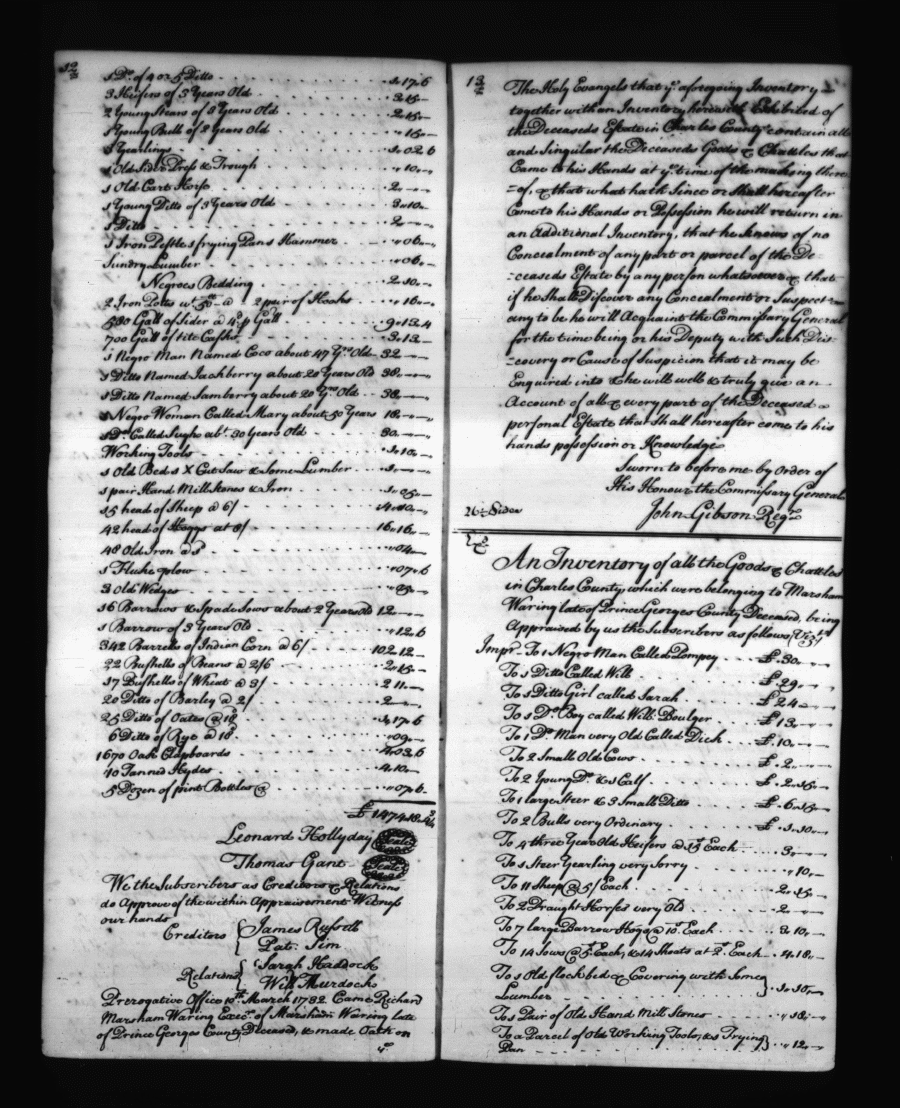 12
1 Do. of 4 or 5 Ditto . . . 1,, 17,, 6
3 Heifers of 3 Years Old . . . 3,, 15,, —
2 Young Steers of 3 Years Old . . . 2,, 15,, —
1 Young Bull of 2 Years Old . . . ,, 15,, —
3 Yearlings . . . 1,, 02,, 6
1 Old Sider Press & Trough . . . ,, 10,, —
1 Old Cart Horse . . . 2,, — ,, —
1 Young Ditto of 3 Years Old . . . 3,, 10,, —
1 Ditto . . . 2,, — ,, —
1 Iron Pestle 1 frying Pan 1 Hammer . . . ,, 06,, —
Sundry Lumber . . . ,, 06,, —
Negroes Bedding . . . 2,, 10,, —
2 Iron Potts wt. 50 — @ 2 pair of Hooks . . . ,, 16,, —
580 Gall of Sider @ 4d. p Gall . . . 9,, 13,, 4
700 Gall of tite Casks . . . 3,, 13,, —
1 Negro Man Named Coco about 47 Yrs. Old 32,, — ,, —
1 Ditto Named Jackberry about 20 Years Old 38,, — ,, —
1 Ditto Named Samberry about 20 Yrs. Old 38,, — ,, —
1 Negro Woman Called Mary about 50 Years 18,, — ,, —
1 Do. Called abt. 30 Years Old . . . 30,, — ,, —
Working Tools . . . 1,, 10,, —
1 Old Bed 1 X Cut Saw & Some Lumber . . . 1,, — ,, —
1 pair Hand Mill Stones & Iron . . . 1,, 05,, —
15 head of Sheep @ 6/ . . . 4,, 10,, —
42 head of Hoggs at 8/ . . . 16,, 16,, —
48 Old Iron @ 1d . . . ,, 04,, —
1 Fluke plow . . . ,, 07,, 6
3 Old Wedges . . .
16 Barrows & Spade Sows about 2 Years Old 12,, — ,, —
1 Barrow of 3 Years Old . . . ,, 12,, 6
342 Barrells of Indian Corn @ 6/ . . . 102,, 12,, —
22 Bushells of Beans @ 2/6 . . . 2,, 15,, —
17 Bushells of Wheat @ 3/ . . . 2,, 11,, —
20 Ditto of Barley @ 2/ . . . 2,, — ,, —
25 Ditto of Oates @ 18d . . . 1,, 17,, 6
6 Ditto of Rye @ 18d . . . ,, 09,, —
1670 Oak Clapboards . . . 4,, 03,, 6
40 Tanned Hydes . . . 4,, 10,, —
5 Dozen of pint Bottles @ . . . ,, 07,, 6
£ 1474,, 18,,
Leonard Hollyday (Seal)
Thomas Gant (Seal)
We the Subscribers as Creditors & Relations
do Approve of the within Appraisement Witness
our hands
Creditors { James Russell
Pat. Sim
Relations { Sarah Haddock
Will Murdock
Prerogative Office 10th. March 1732. Came Richard
Marsham Waring Exec. of Marsham Waring late
of Prince Georges County Deceased, & made Oath on
ye.
13
The Holy Evangels that ye. aforegoing Inventory
together with an Inventory herewith Exhibited of
the Deceaseds Estate in Charles County contain all
and Singular the Deceaseds Goods & Chattles that
Came to his Hands at ye. time of the making there
=of, & that what hath Since or shall hereafter
Come to his Hands or Possession he will return in
an Additional Inventory, that he knows of no
Concealment of any part or parcel of the De
=ceaseds Estate by any person whatsoever & that
if he Shall Discover any Concealment or Suspect
any to be he will Acquaint the Commissary General
for the time being or his Deputy with Such Dis
=covery or Cause of Suspicion that it may be
Enquired into & he will well & truly give an
Account of all & every part of the Deceased
personal Estate that shall hereafter come to his
hands possession or Knowledge
Sworn to before me by Order of
His Honour the Commissary General
26 Sides John Gibson Regr.
An Inventory of all the Goods & Chattles
in Charles County which were belonging to Marsham
Waring late of Prince Georges County Deceased, being
Appraised by us the Subscribers as follows, Vizt.
Impr. To 1 Negro Man Called Pompey . . . £ 30,, — ,, —
To 1 Ditto Called Will . . . £ 29,, — ,, —
To 1 Ditto Girl called Sarah . . . £ 24,, — ,, —
To 1 Do. Boy called Will: Boulger . . . £ 13,, — ,, —
To 1 Do. Man very Old Called Dick . . . £ 10,, — ,, —
To 2 Small Old Cows . . . £ 2,, — ,, —
To 2 Young Do. & 1 Calf . . . £ 2,, 15,, —
To 1 large Steer & 3 Small Ditto . . . £ 6,, 15,, —
To 2 Bulls very Ordinary . . . £ 1,, 10,, —
To 4 three Year Old Heifers @ 15/ Each . . . 3,, — ,, —
To 1 Steer Yearling very Sorry . . . ,, 10,, —
To 11 Sheep @ 5/ Each . . . 2,, 15,, —
To 2 Draught Horses very Old . . . 2,, — ,, —
To 7 large Barrow Hogs @ 10/ Each . . . 3,, 10,, —
To 14 Sows @ 5/ Each, & 14 Shoats at 2/ Each . . . 4,, 18,, —
To 1 Old flock bed & Covering with Some
Lumber . . . } 1,, 10,, —
To 1 Pair of Old Hand Mill Stones . . . ,, 18,, —
To a Parcel of Old Working Tools, & 1 Frying
Pan . . . } ,, 12,, —